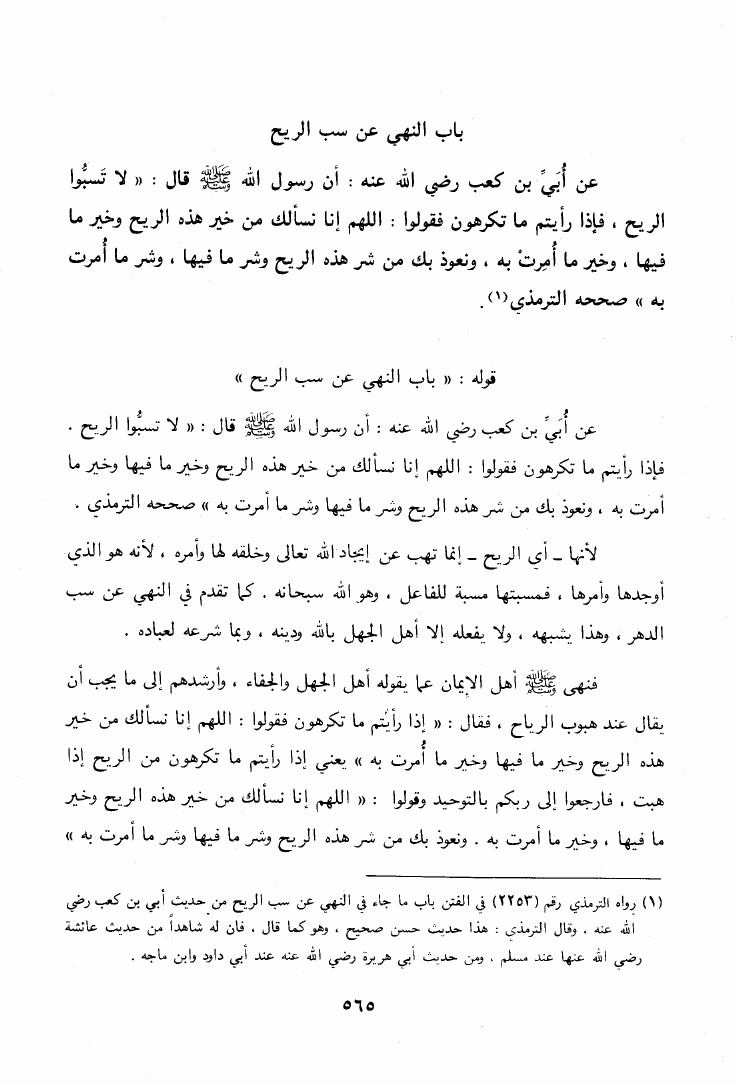 باب النهي عن سب الريح
عن أُبَيِّ بن كعب رضي الله عنه : أن رسول الله ﷺ قال : « لا تَسبُّوا
الريح ، فإذا رأيتم ما تكرهون فقولوا : اللهم إنا نسألك من خير هذه الريح وخير ما
فيها ، وخير ما أُمِرتْ به ، ونعوذ بك من شر هذه الريح وشر ما فيها ، وشر ما أُمرت
به » صححه الترمذي(١) .
قوله : « باب النهي عن سب الريح »
عن أُبَيِّ بن كعب رضي الله عنه : أن رسول الله ﷺ قال : « لا تسبُّوا الريح .
فإذا رأيتم ما تكرهون فقولوا : اللهم إنا نسألك من خير هذه الريح وخير ما فيها وخير ما
أمرت به ، ونعوذ بك من شر هذه الريح وشر ما فيها وشر ما أمرت به » صححه الترمذي .
لأنها ــ أي الريح ــ إنما تهب عن إيجاد الله تعالى وخلقه لها وأمره ، لأنه هو الذي
أوجدها وأمرها ، فمسبتها مسبة للفاعل ، وهو الله سبحانه . كما تقدم في النهي عن سب
الدهر ، وهذا يشبهه ، ولا يفعله إلا أهل الجهل بالله ودينه ، وبما شرعه لعباده .
فنهى ﷺ أهل الإيمان عما يقوله أهل الجهل والجفاء ، وأرشدهم إلى ما يجب أن
يقال عند هبوب الرياح ، فقال : « إذا رأيتم ما تكرهون فقولوا : اللهم إنا نسألك من خير
هذه الريح وخير ما فيها وخير ما أُمرت به » يعني إذا رأيتم ما تكرهون من الريح إذا
هبت ، فارجعوا إلى ربكم بالتوحيد وقولوا : « اللهم إنا نسألك من خير هذه الريح وخير
ما فيها ، وخير ما أمرت به . ونعوذ بك من شر هذه الريح وشر ما فيها وشر ما أمرت به »
(١) رواه الترمذي رقم (٢٢٥٣) في الفتن باب ما جاء في النهي عن سب الريح من حديث أبي بن كعب رضي
الله عنه ، وقال الترمذي : هذا حديث حسن صحيح ، وهو كما قال ، فان له شاهداً من حديث عائشة
رضي الله عنها عند مسلم ، ومن حديث أبي هريرة رضي الله عنه عند أبي داود وابن ماجه .
٥٦٥